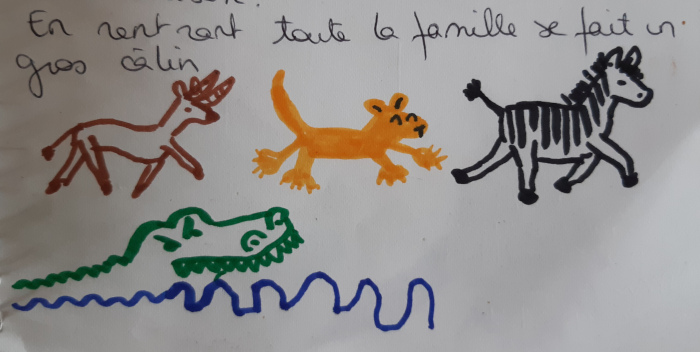 En rentrant toute la famille se fait un
gros câlin